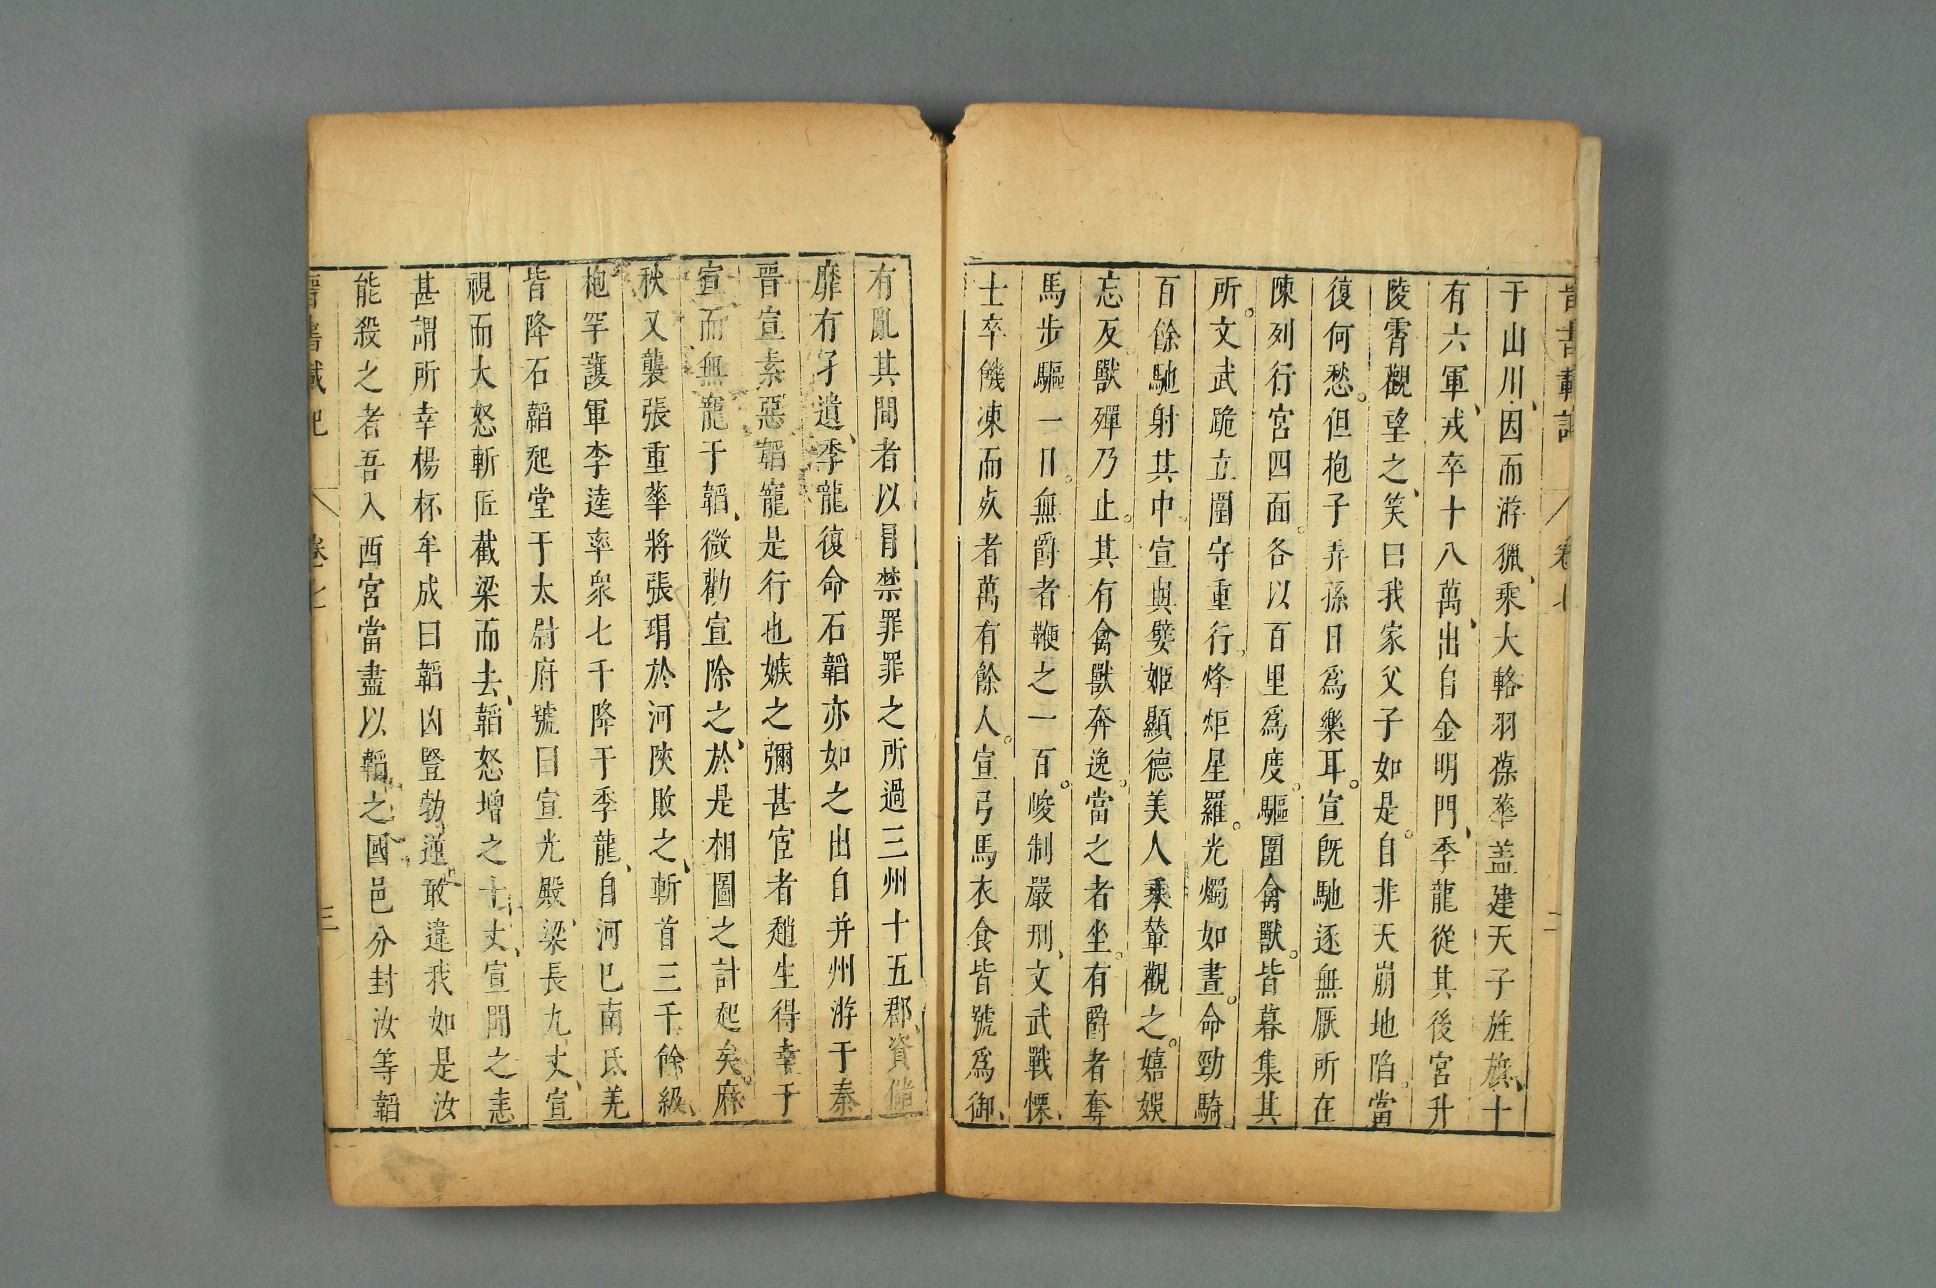 晉書載記 卷七 二
于山川、因而游獵、乘大輅羽葆華盖建天子旌旗、十
有六軍、戎卒十八萬、出自金明門、季龍從其後宮升
陵霄觀望之、笑曰我家父子如是。自非天崩地陷。當
復何愁。但抱子弄孫日爲樂耳。宣旣馳逐無厭所在
陳列行宮四面。各以百里爲度。驅圍禽獸。皆暮集其
所。文武跪立圍守重行。烽炬星羅。光燭如晝。命勁騎
百餘馳射其中。宣與嬖姬顯德美人乘輦觀之。嬉娛
忘反。獸殫乃止。其有禽獸奔逸。當之者坐。有爵者奪
馬步驅一日。無爵者鞭之一百。峻制嚴刑、文武戰慄、
士卒饑凍而死者萬有餘人。宣弓馬衣食皆號爲御、
有亂其間者以冒禁罪罪之所過三州十五郡、資儲
靡有孑遺、季龍復命石韜亦如之出自并州游于秦
晉宣素惡韜寵是行也嫉之彌甚宦者趙生得幸于
宣而無寵于韜、微勸宣除之、於是相圖之計起矣。麻
秋又襲張重華將張瑁於河陝敗之、斬首三千餘級、
枹罕護軍李逵率衆七千降于季龍、自河已南氐羌
皆降石韜起堂于太尉府號曰宣光殿、梁長九丈、宣
視而大怒斬匠截梁而去、韜怒增之十丈、宣聞之恚
甚謂所幸楊杯牟成曰韜凶豎勃逆敢違我如是汝
能殺之者吾入西宮當盡以韜之國邑分封汝等韜
晉書載記 卷七 三